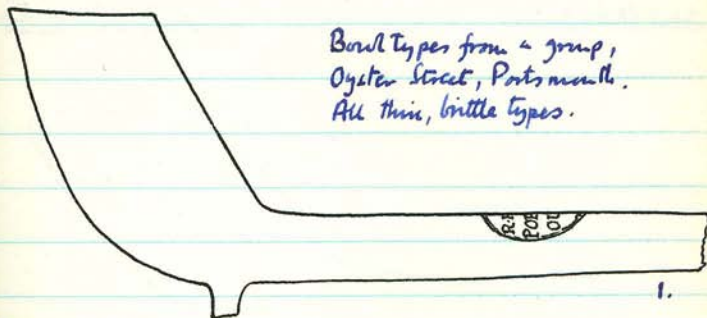 Bowl types from a group,
Oyster Street, Portsmouth.
All thin, brittle types.
R.
POR
OU
1.